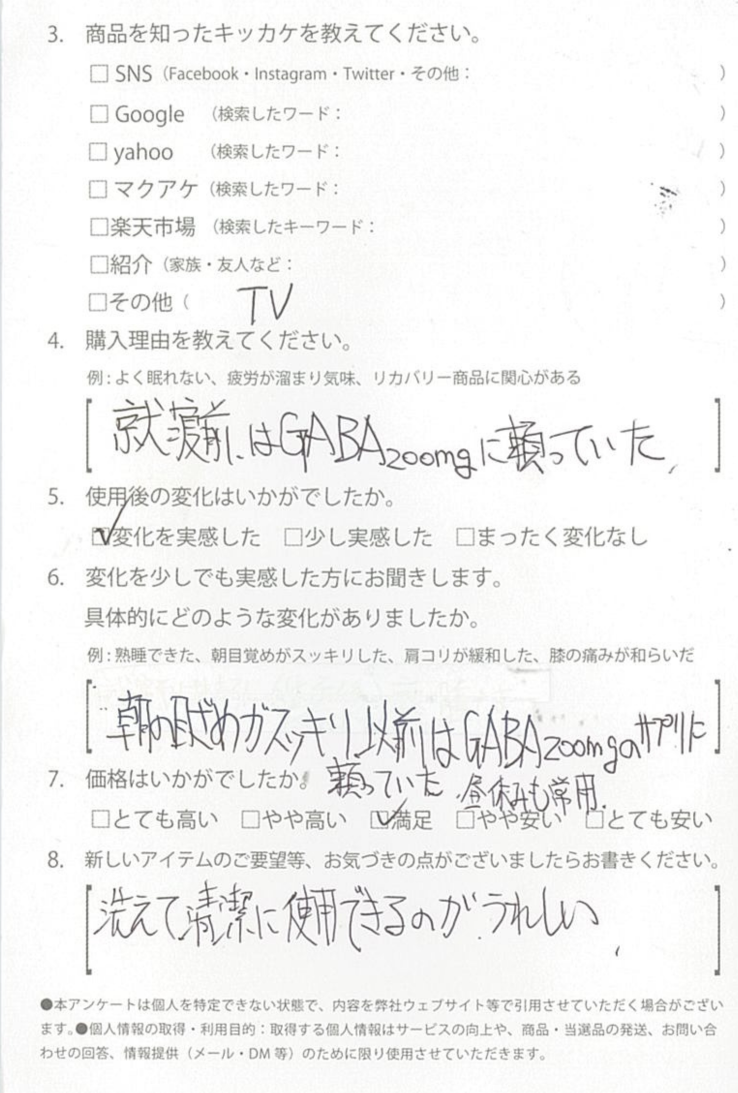 3. 商品を知ったキッカケを教えてください。
□ SNS（Facebook・Instagram・Twitter・その他： ）
□ Google （検索したワード： ）
□ yahoo （検索したワード： ）
□ マクアケ（検索したワード： ）
□楽天市場（検索したキーワード： ）
□紹介（家族・友人など： ）
□その他（ TV ）
4. 購入理由を教えてください。
例：よく眠れない、疲労が溜まり気味、リカバリー商品に関心がある
就寝前はGABA200mgに頼っていた
5. 使用後の変化はいかがでしたか。
☑変化を実感した □少し実感した □まったく変化なし
6. 変化を少しでも実感した方にお聞きします。
具体的にどのような変化がありましたか。
例：熟睡できた、朝目覚めがスッキリした、肩コリが緩和した、膝の痛みが和らいだ
朝の目ざめがスッキリ以前はGABA200mgのサプリに
頼っていた 昼休みも常用.
7. 価格はいかがでしたか。
□とても高い □やや高い ☑満足 □やや安い □とても安い
8. 新しいアイテムのご要望等、お気づきの点がございましたらお書きください。
洗えて清潔に使用できるのがうれしい
●本アンケートは個人を特定できない状態で、内容を弊社ウェブサイト等で引用させていただく場合がござい
ます。●個人情報の取得・利用目的：取得する個人情報はサービスの向上や、商品・当選品の発送、お問い合
わせの回答、情報提供（メール・DM 等）のために限り使用させていただきます。